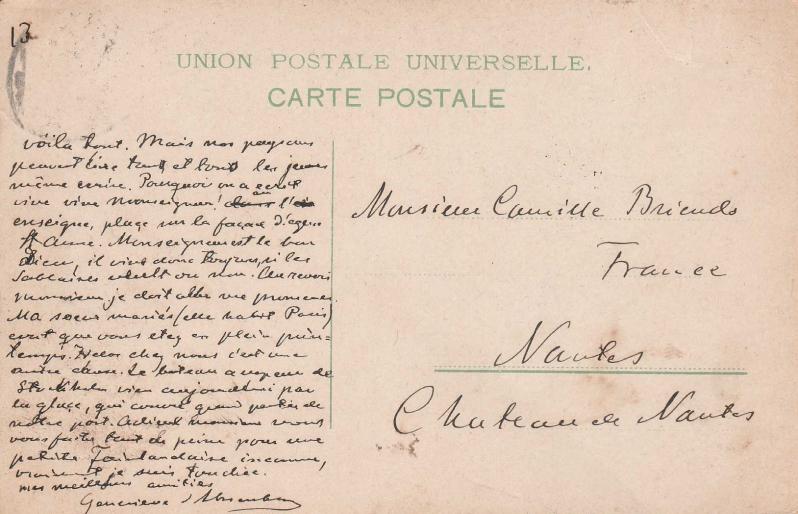 13
UNION POSTALE UNIVERSELLE.
CARTE POSTALE
voila tout. Mais nos paysans
peuvent lire tous et tous les jeunes
même ecrire. Pourquoi on a ecrit
vive vive monseigneur! au
enseigne, place sur la façade d'
St Anne. Monseigneur est le bon
Dieu, il vive donc toujours, si les
ou non. Au revoir
monsieur je doit aller me promener.
Ma soeur mariés (elle habit Paris)
ecrit que vous etez en plein prin-
temps. Helas chez nous c'est une
autre chose. Le bateau a vapeur de
Stockholm vien aujourdhui par
la glace, qui couvre grand partie de
notre port. Adieu monsieur vous
vous faite tant de peine pour une
petite Finlandaise inconnue,
vraiment je suis touchée.
mes meilleurs amitiés
Genevieve
Monsieur Camille Briendo
France
Nantes
Chateau de Nantes